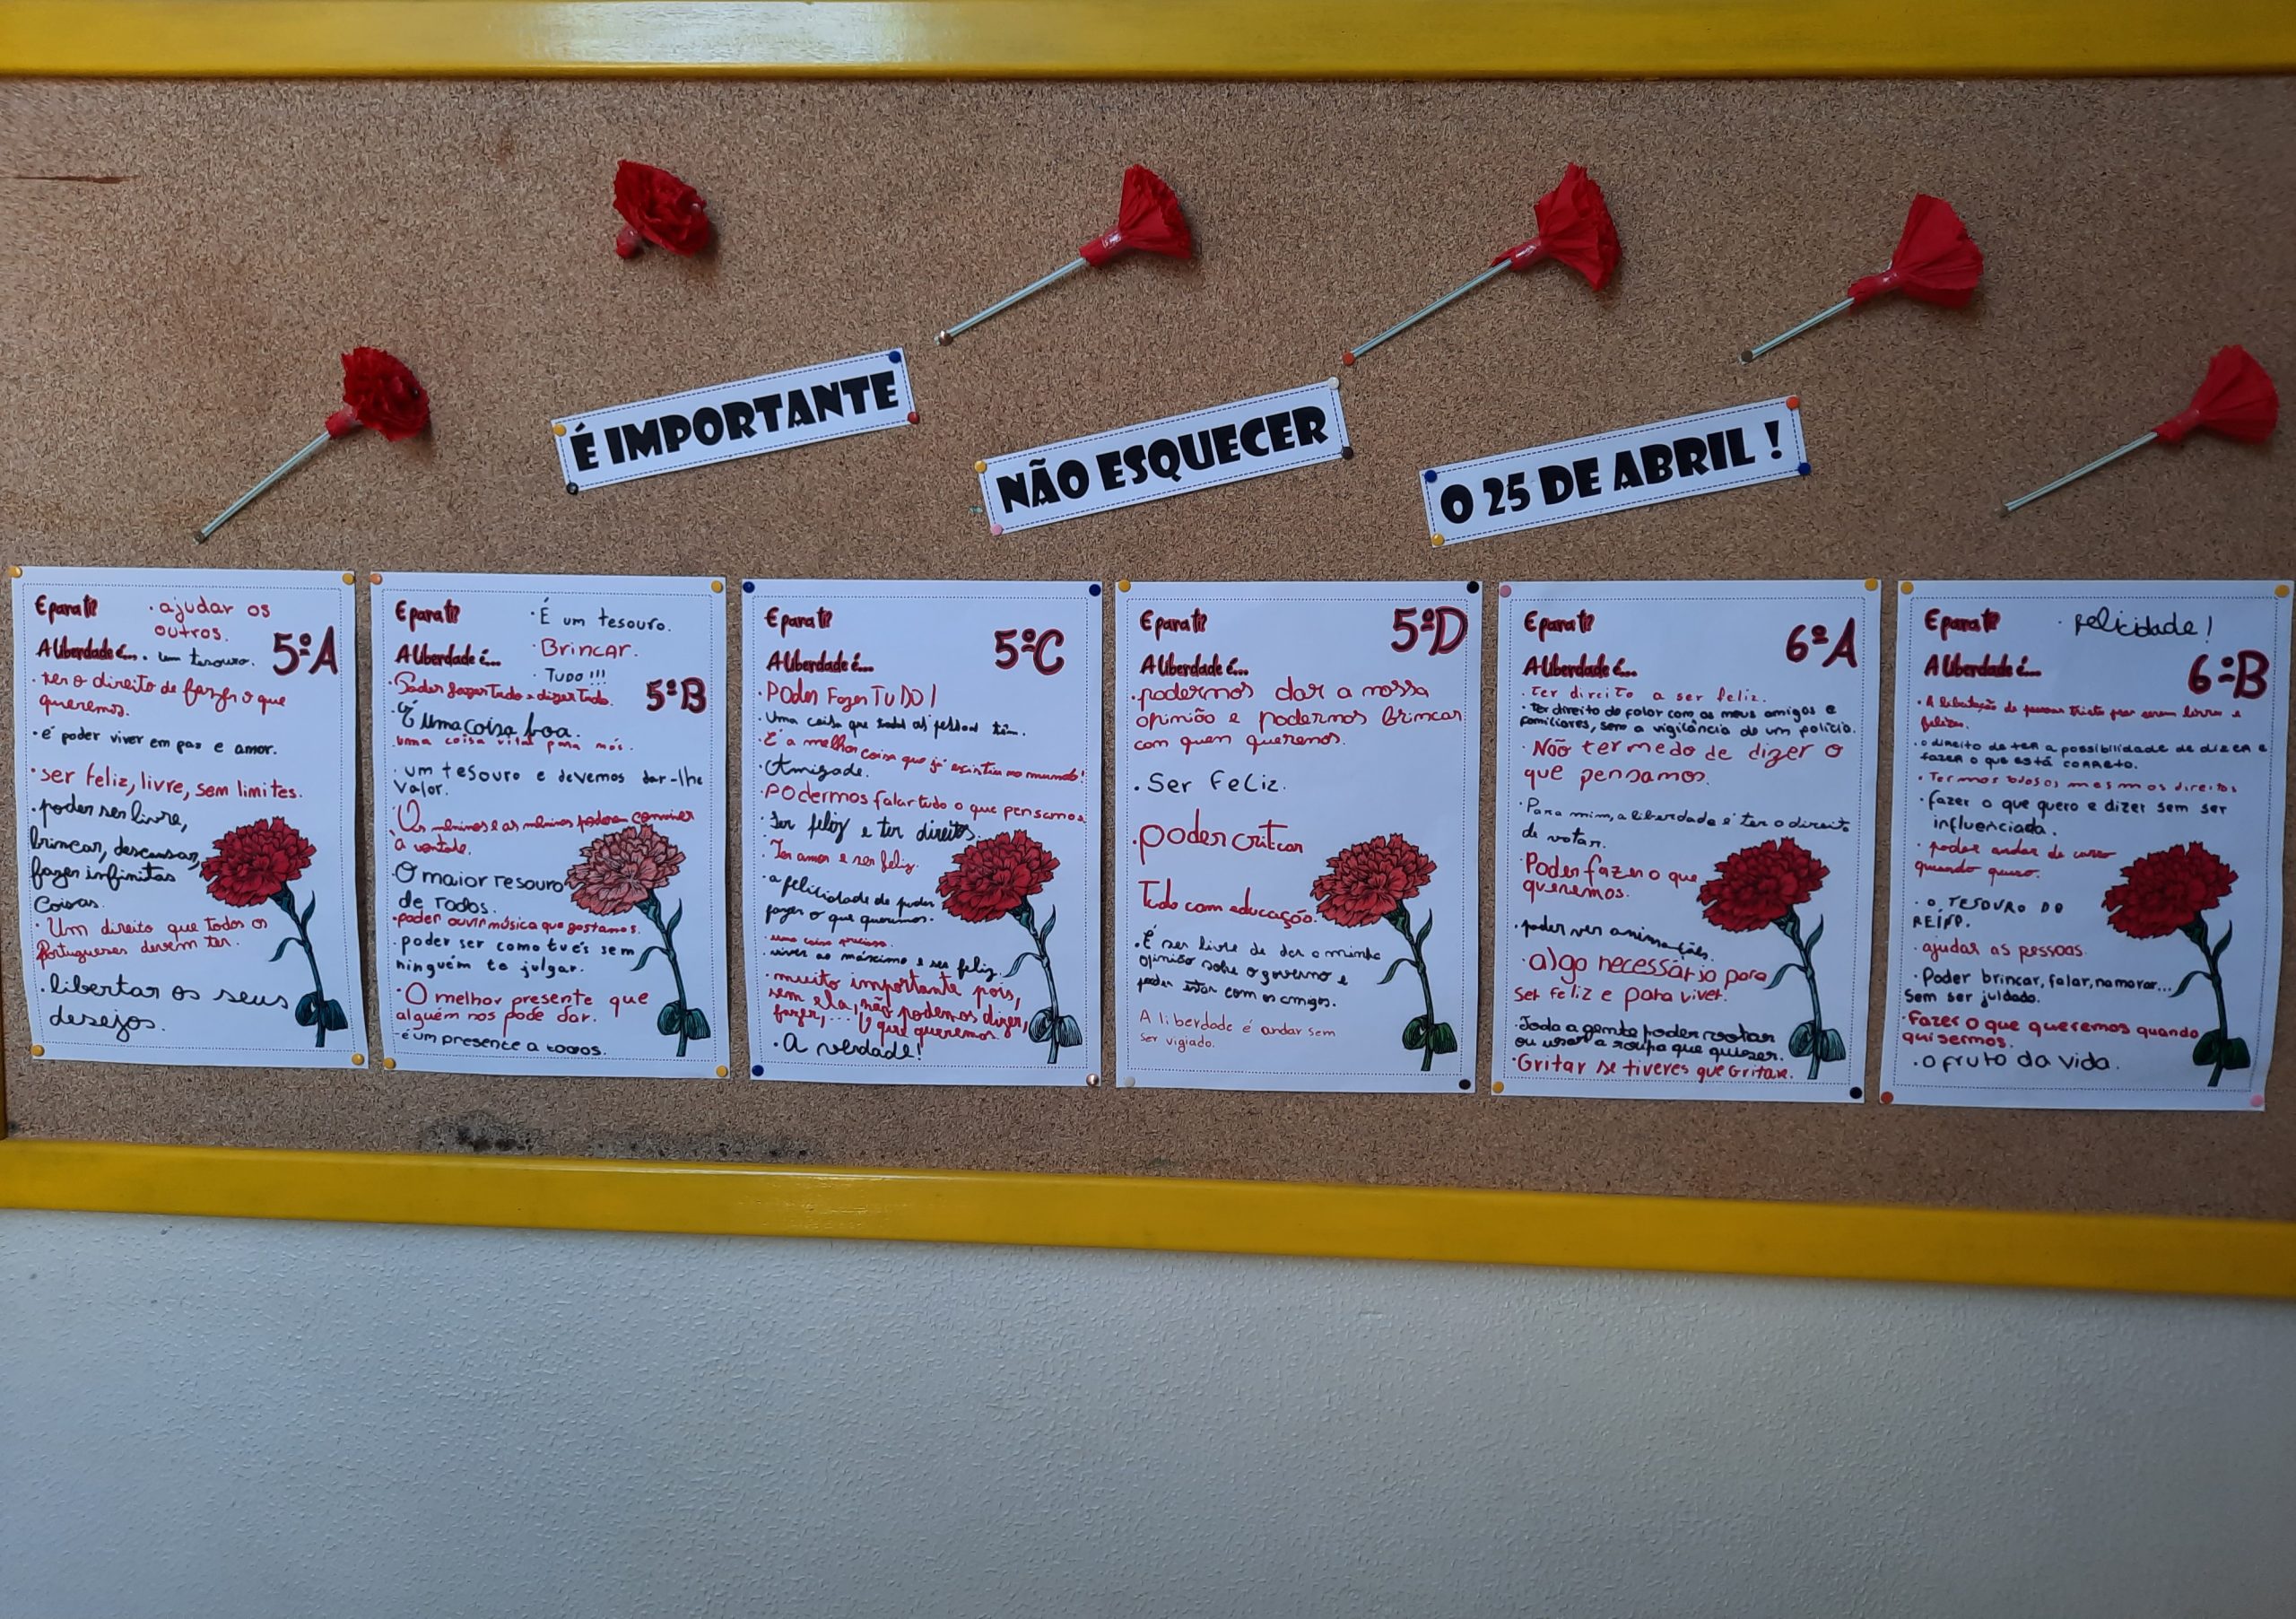 É IMPORTANTE
NÃO ESQUECER
O 25 DE ABRIL !
E para ti?
A liberdade é...
5ºA
· ajudar os
outros.
· um tesouro.
· ter o direito de fazer o que
queremos.
· é poder viver em paz e amor.
· ser feliz, livre, sem limites.
· poder ser livre,
brincar, descansar,
fazer infinitas
coisas.
· Um direito que todos os
Portugueses devem ter.
· libertar os seus
desejos.
E para ti?
A liberdade é...
5ºB
· É um tesouro.
· Brincar.
· TUDO !!!
· Poder fazer tudo e dizer tudo.
· É uma coisa boa.
· uma coisa vital para nós.
· um tesouro e devemos dar-lhe
valor.
· Os meninos e as meninas poderem conviver
à vontade.
· O maior tesouro
de todos.
· poder ouvir música que gostamos.
· poder ser como tu és sem
ninguém te julgar.
· O melhor presente que
alguém nos pode dar.
· é um presente a todos.
E para ti?
A liberdade é...
5ºC
· PODER FAZER TUDO!
· Uma coisa que todas as pessoas têm.
· É a melhor coisa que já existiu no mundo!
· Amizade.
· Podermos falar tudo o que pensamos.
· Ser feliz e ter direitos.
· Ter amor e ser feliz.
· a felicidade de poder
fazer o que queremos.
· uma coisa preciosa.
· viver ao máximo e ser feliz.
· muito importante pois,
sem ela, não podemos dizer,
fazer,... O que queremos.
· A verdade!
E para ti?
A liberdade é...
5ºD
· podermos dar a nossa
opinião e podermos brincar
com quem queremos.
· Ser Feliz.
· poder criticar
Tudo com educação.
· É ser livre de dar a minha
opinião sobre o governo e
poder estar com os amigos.
A liberdade é andar sem
ser vigiado.
E para ti?
A liberdade é...
6ºA
· Ter direito a ser feliz.
· Ter direito de falar com os meus amigos e
familiares, sem a vigilância de um polícia.
· Não ter medo de dizer o
que pensamos.
· Para mim, a liberdade é ter o direito
de votar.
· Poder fazer o que
queremos.
· poder ver animações.
· algo necessário para
ser feliz e para viver.
· Toda a gente poder votar
ou usar a roupa que quiser.
· Gritar se tiveres que Gritar.
E para ti?
A liberdade é...
6ºB
· felicidade!
· A libertação de pessoas tristes para serem livres e
felizes.
· o direito de ter a possibilidade de dizer e
fazer o que está correto.
· Termos todos os mesmos direitos
· fazer o que quero e dizer sem ser
influenciada.
· poder andar de carro
quando quero.
· O TESOURO DO
REINO.
· ajudar as pessoas.
· Poder brincar, falar, namorar...
Sem ser julgado.
· Fazer o que queremos quando
quisermos.
· o fruto da vida.